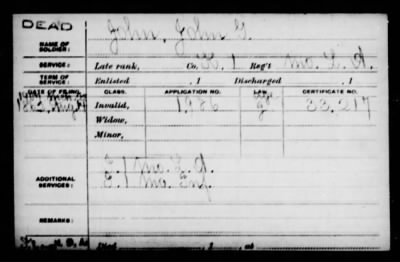 DEAD
NAME OF SOLDIER: John, John G.
SERVICE: Late rank, Co. K. 1 Reg't Mo. L. A.
TERM OF SERVICE: Enlisted , 1 Discharged , 1
DATE OF FILING. CLASS. APPLICATION NO. LAW. CERTIFICATE NO.
Invalid, 1986 33.217
Widow,
Minor,
ADDITIONAL SERVICES: E. 1 Mo. L. A.
E. 1 Mo. Inf.
REMARKS:
Died , 1 , at